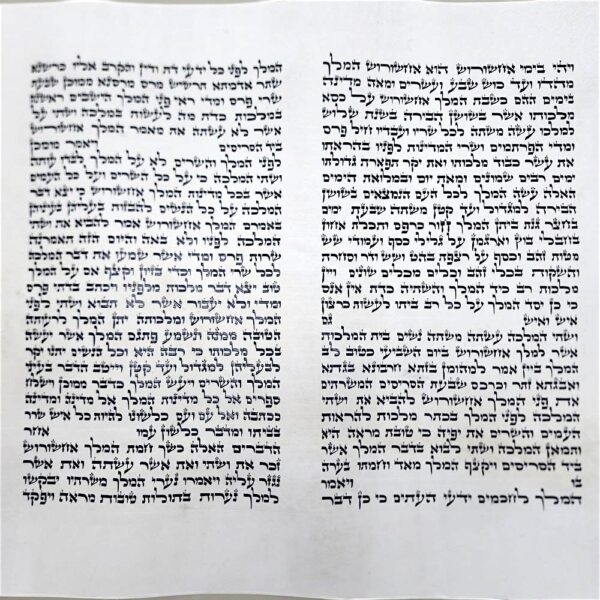 ויהי בימי אחשורוש הוא אחשורוש המלך
מהדו ועד כוש שבע ועשרים ומאה מדינה
בימים ההם כשבת המלך אחשורוש על כסא
מלכותו אשר בשושן הבירה בשנת שלוש
למלכו עשה משתה לכל שריו ועבדיו חיל פרס
ומדי הפרתמים ושרי המדינות לפניו בהראתו
את עשר כבוד מלכותו ואת יקר תפארת גדולתו
ימים רבים שמונים ומאת יום ובמלואת הימים
האלה עשה המלך לכל העם הנמצאים בשושן
הבירה למגדול ועד קטן משתה שבעת ימים
בחצר גנת ביתן המלך חור כרפס ותכלת אחוז
בחבלי בוץ וארגמן על גלילי כסף ועמודי שש
מטות זהב וכסף על רצפת בהט ושש ודר וסחרת
והשקות בכלי זהב וכלים מכלים שונים ויין
מלכות רב כיד המלך והשתיה כדת אין אנס
כי כן יסד המלך על כל רב ביתו לעשות כרצון
איש ואיש גם
ושתי המלכה עשתה משתה נשים בית המלכות
אשר למלך אחשורוש ביום השביעי כטוב לב
המלך ביין אמר למהומן בזתא חרבונא בגתא
ואבגתא זתר וכרכס שבעת הסריסים המשרתים
את פני המלך אחשורוש להביא את ושתי
המלכה לפני המלך בכתר מלכות להראות
העמים והשרים את יפיה כי טובת מראה היא
ותמאן המלכה ושתי לבוא בדבר המלך אשר
ביד הסריסים ויקצף המלך מאד וחמתו בערה
בו ויאמר
המלך לחכמים ידעי העתים כי כן דבר
המלך לפני כל ידעי דת ודין והקרב אליו כרשנא
שתר אדמתא תרשיש מרס מרסנא ממוכן שבעת
שרי פרס ומדי ראי פני המלך הישבים ראשנה
במלכות כדת מה לעשות במלכה ושתי על
אשר לא עשתה את מאמר המלך אחשורוש
ביד הסריסים ויאמר מומכן
לפני המלך והשרים לא על המלך לבדו עותה
ושתי המלכה כי על כל השרים ועל כל העמים
אשר בכל מדינות המלך אחשורוש כי יצא דבר
המלכה על כל הנשים להבזות בעליהן בעיניהן
באמרם המלך אחשורוש אמר להביא את ושתי
המלכה לפניו ולא באה והיום הזה תאמרנה
שרות פרס ומדי אשר שמעו את דבר המלכה
לכל שרי המלך וכדי בזיון וקצף אם על המלך
טוב יצא דבר מלכות מלפניו ויכתב בדתי פרס
ומדי ולא יעבור אשר לא תבוא ושתי לפני
המלך אחשורוש ומלכותה יתן המלך לרעותה
הטובה ממנה ונשמע פתגם המלך אשר יעשה
בכל מלכותו כי רבה היא וכל הנשים יתנו יקר
לבעליהן למגדול ועד קטן וייטב הדבר בעיני
המלך והשרים ויעש המלך כדבר ממוכן וישלח
ספרים אל כל מדינות המלך אל מדינה ומדינה
ככתבה ואל עם ועם כלשונו להיות כל איש שרר
בביתו ומדבר כלשון עמו אחר
הדברים האלה כשך חמת המלך אחשורוש
זכר את ושתי ואת אשר עשתה ואת אשר
נגזר עליה ויאמרו נערי המלך משרתיו יבקשו
למלך נערות בתולות טובות מראה ויפקד